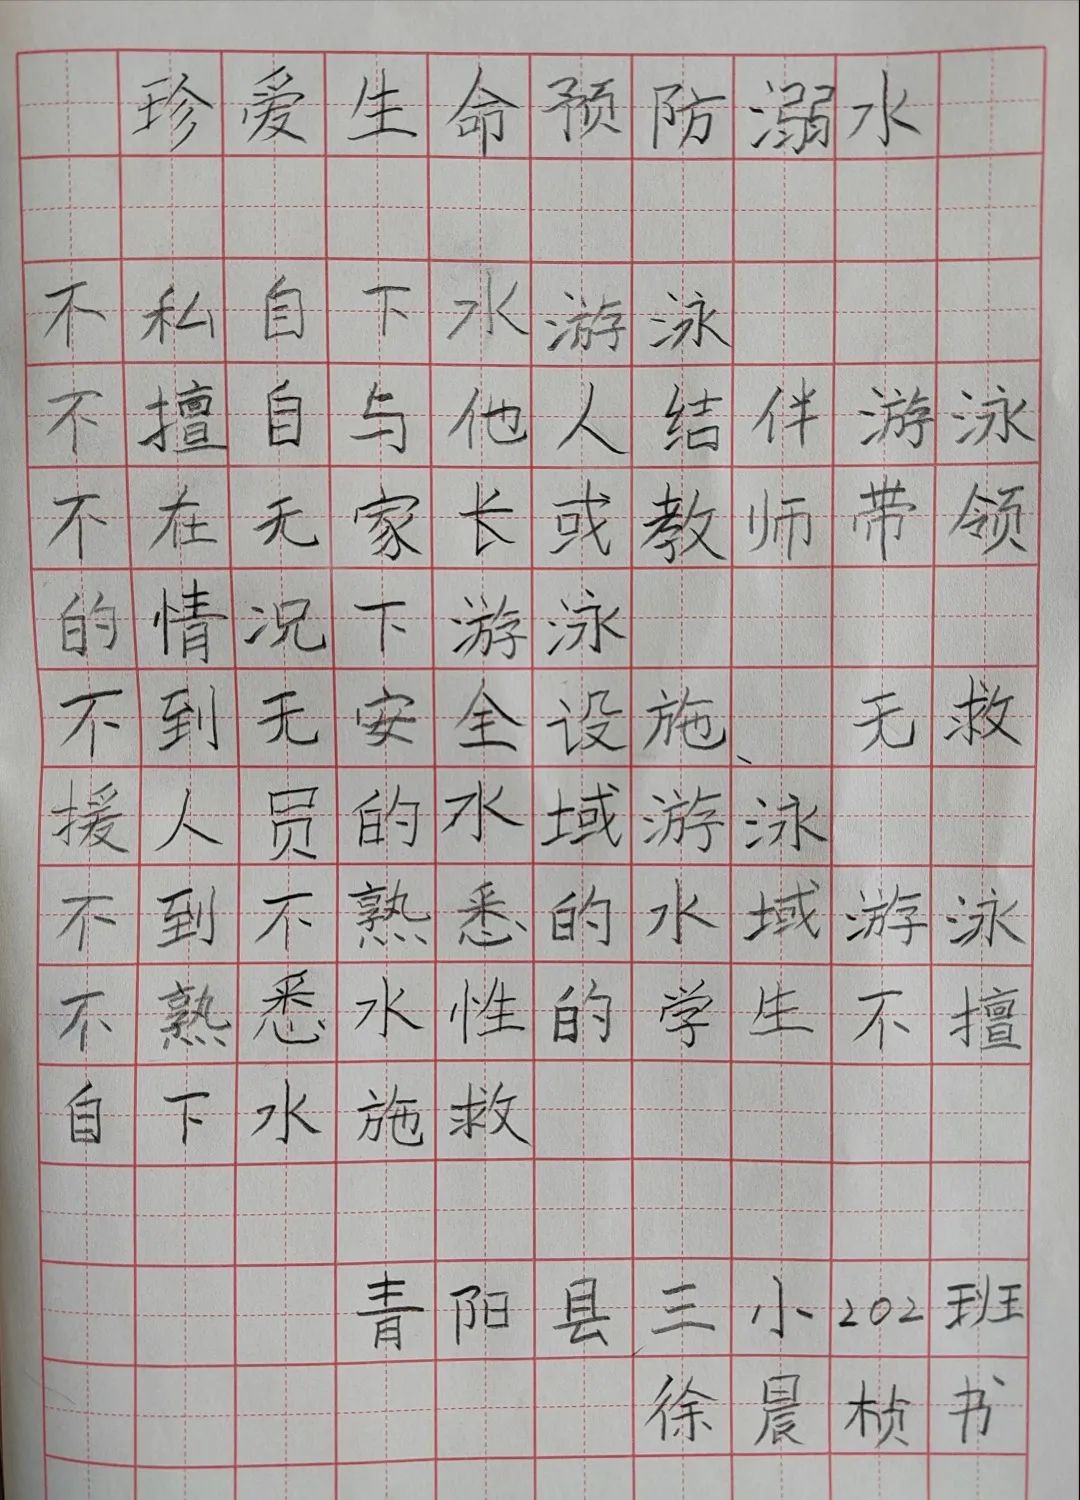 珍爱生命预防溺水
不私自下水游泳
不擅自与他人结伴游泳
不在无家长或教师带领
的情况下游泳
不到无安全设施、无救
援人员的水域游泳
不到不熟悉的水域游泳
不熟悉水性的学生不擅
自下水施救
青阳县三小202班
徐晨桢书